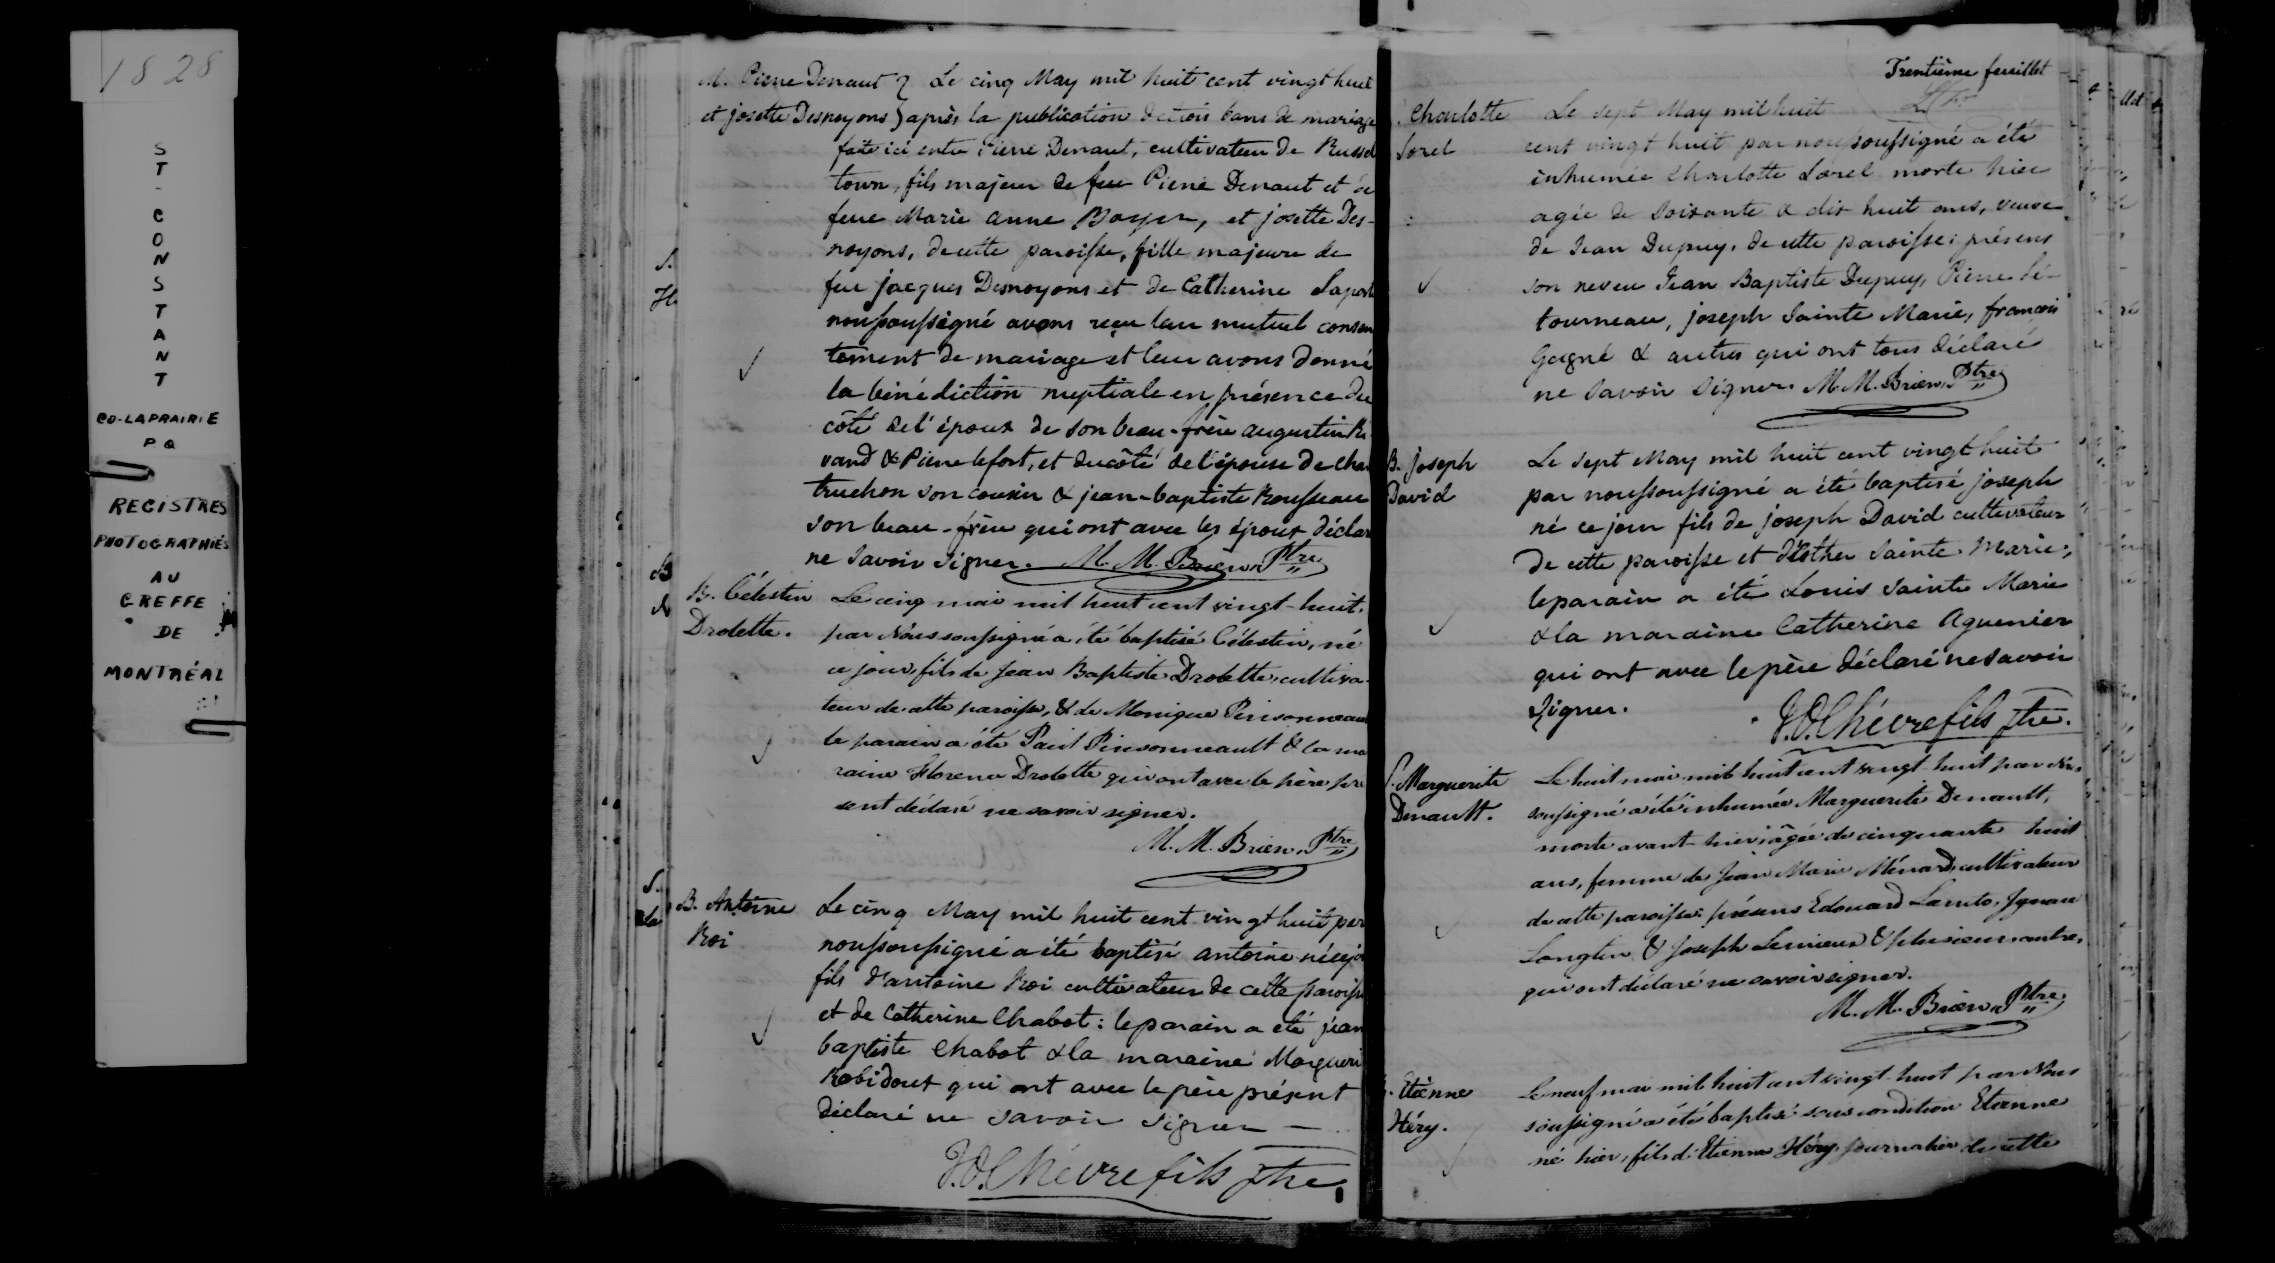 1828
ST-CONSTANT
CO-LAPRAIRIE
PQ
REGISTRES
PHOTOGRAPHIÉS
AU
GREFFE
DE
MONTRÉAL
M. Pierre Denaut
et josette Desnoyons
Le cinq May mil huit cent vingt huit
après la publication de trois bans de mariage
faite ici entre Pierre Denaut, cultivateur de Russel
town, fils majeur de feu Pierre Denaut et de
feue Marie anne Boyer, et josette Des-
noyons, de cette paroisse, fille majeure de
feu jacques Desnoyons et de Catherine Laporte
nous soussigné avons reçu leur mutuel consen
tement de mariage et leur avons donné
la bénédiction nuptiale en présence du
côté de l'époux de son beau-frère augustin
vand & Pierre lefort, et du côté de l'épouse de
truchon son cousin & jean-baptiste Rousseau
son beau-frère qui ont avec les époux déclar
ne savoir signer. M. M. Brien, Ptre
B. Célestin
Drolette.
Le cinq mai mil huit cent vingt-huit,
par Nous soussigné a été baptisé Célestin, né
ce jour, fils de Jean Baptiste Drolette, cultiva-
teur de cette paroisse, & de Monique Pinsonneau
le parain a été Paul Pinsonneault & la ma
raine Florence Drolette qui ont avec le père pré
sent déclaré ne savoir signer.
M. M. Brien, Ptre
B. Antoine
Roi
Le cinq May mil huit cent vingt huit par
nous soussigné a été baptisé antoine né ce jo
fils d'antoine Roi cultivateur de cette paroisse
et de Catherine Chabot: le parain a été jean
baptiste Chabot & la maraine Margueri
Robidout qui ont avec le père présent
déclaré ne savoir signer —
J.O. Chèvrefils ptre.
Trentième feuillet
Charlotte
Sorel
Le sept May mil huit
cent vingt huit par nous soussigné a été
inhumée Charlotte Sorel morte hier
agée de soixante & dix huit ans, veuve
de Jean Dupuy, de cette paroisse: présens
son neveu Jean Baptiste Dupuy, Pierre Lé-
tourneau, joseph Sainte Marie, françois
Gagné & autres qui ont tous déclaré
ne savoir signer. M. M. Brien, Ptre
B. Joseph
David
Le sept May mil huit cent vingt huit
par nous soussigné a été baptisé joseph
né ce jour fils de joseph David cultivateur
de cette paroisse et d'Esther Sainte Marie,
le parain a été Louis Sainte Marie
& la maraine Catherine Aguenier
qui ont avec le père déclaré ne savoir
signer. J.O. Chèvrefils ptre.
S. Marguerite
Denault.
Le huit mai mil huit cent vingt-huit par Nous
soussigné a été inhumée Marguerite Denault,
morte avant-hier, âgée de cinquante huit
ans, femme de Jean Marie Ménard, cultivateur
de cette paroisse: présens Edouard Lancto, Ignace
Longtin & Joseph Lemieux & plusieurs autres
qui ont déclaré ne savoir signer.
M. M. Brien, Ptre
Etienne
Héry.
Le neuf mai mil huit cent vingt-huit par Nous
soussigné a été baptisé sous condition Etienne
né hier, fils d'Etienne Héry, journalier de cette